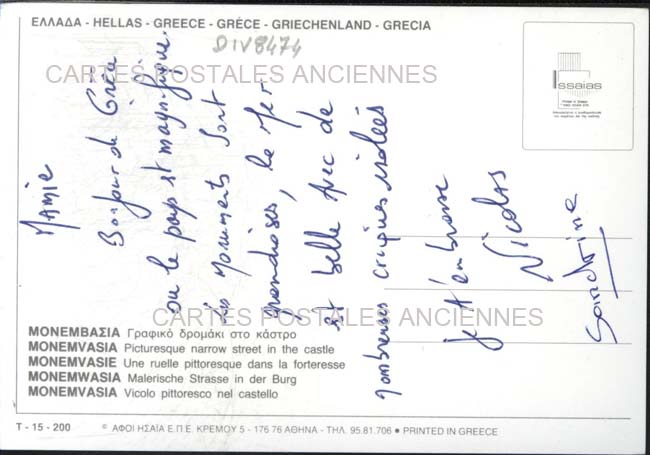 ΕΛΛΑΔΑ - HELLAS - GREECE - GRÉCE - GRIECHENLAND - GRECIA
DIV8474
CARTES POSTALES ANCIENNES
Issaias
Mamie
Bonjour de Grèce
ou le pays est magnifique.
Les Monuments Sont
grandioses, la Mer
est belle avec de
nombreuses criques isolées
je t'embrasse
Nicolas
Sandrine
CARTES POSTALES ANCIENNES
ΜΟΝΕΜΒΑΣΙΑ Γραφικό δρομάκι στο κάστρο
MONEMVASIA Picturesque narrow street in the castle
MONEMVASIE Une ruelle pittoresque dans la forteresse
MONEMWASIA Malerische Strasse in der Burg
MONEMVASIA Vicolo pittoresco nel castello
T - 15 - 200
© ΑΦΟΙ ΗΣΑΪΑ Ε.Π.Ε. ΚΡΕΜΟΥ 5 - 176 76 ΑΘΗΝΑ - ΤΗΛ. 95.81.706 • PRINTED IN GREECE